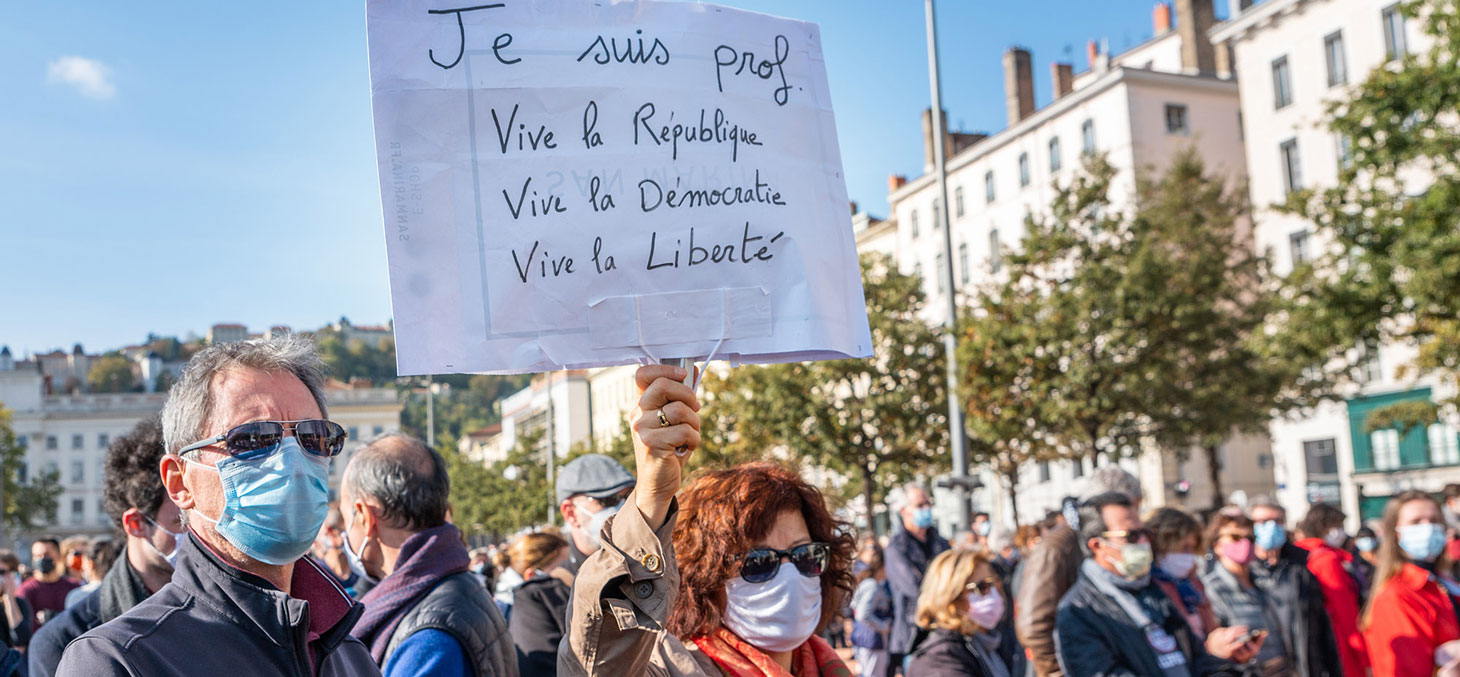 Je suis prof.
Vive la République
Vive la Démocratie
Vive la Liberté
SANMARINA.FR
E-SHOP